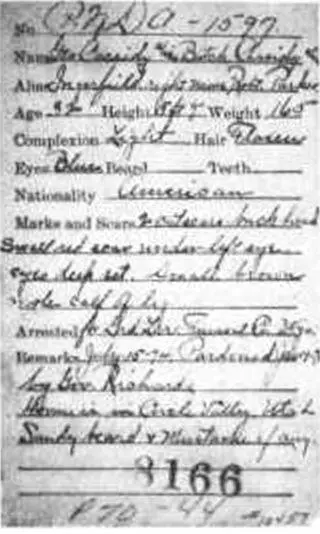 No. (P.N.D) A-1597
Name Geo Cassidy alias Butch Cassidy
Alias Ingerfield, right name Robt. Parker
Age 32 Height 5 ft 9 Weight 165
Complexion Light Hair Flaxen
Eyes Blue Beard Teeth
Nationality American
Marks and Scars 2 cut scars back head
Small red scar under left eye
eyes deep set. small brown
mole calf of leg
Arrested for Grd Lar Fremont Co. Wyo.
Remarks July-15-94. Pardoned
by Gov. Richards
Home is in Circle Valley Utah
Sandy beard & Mustache if any
8166
P 70 - 44